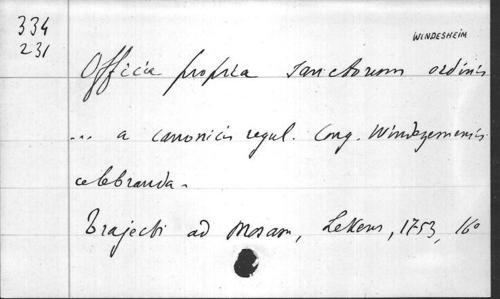 334
231
WINDESHEIM
Officia propria sanctorum ordinis
... a canonicis regul. Cong. Windezemensis
celebranda.
Trajecti ad Mosam, Lekens, 1753, 16°